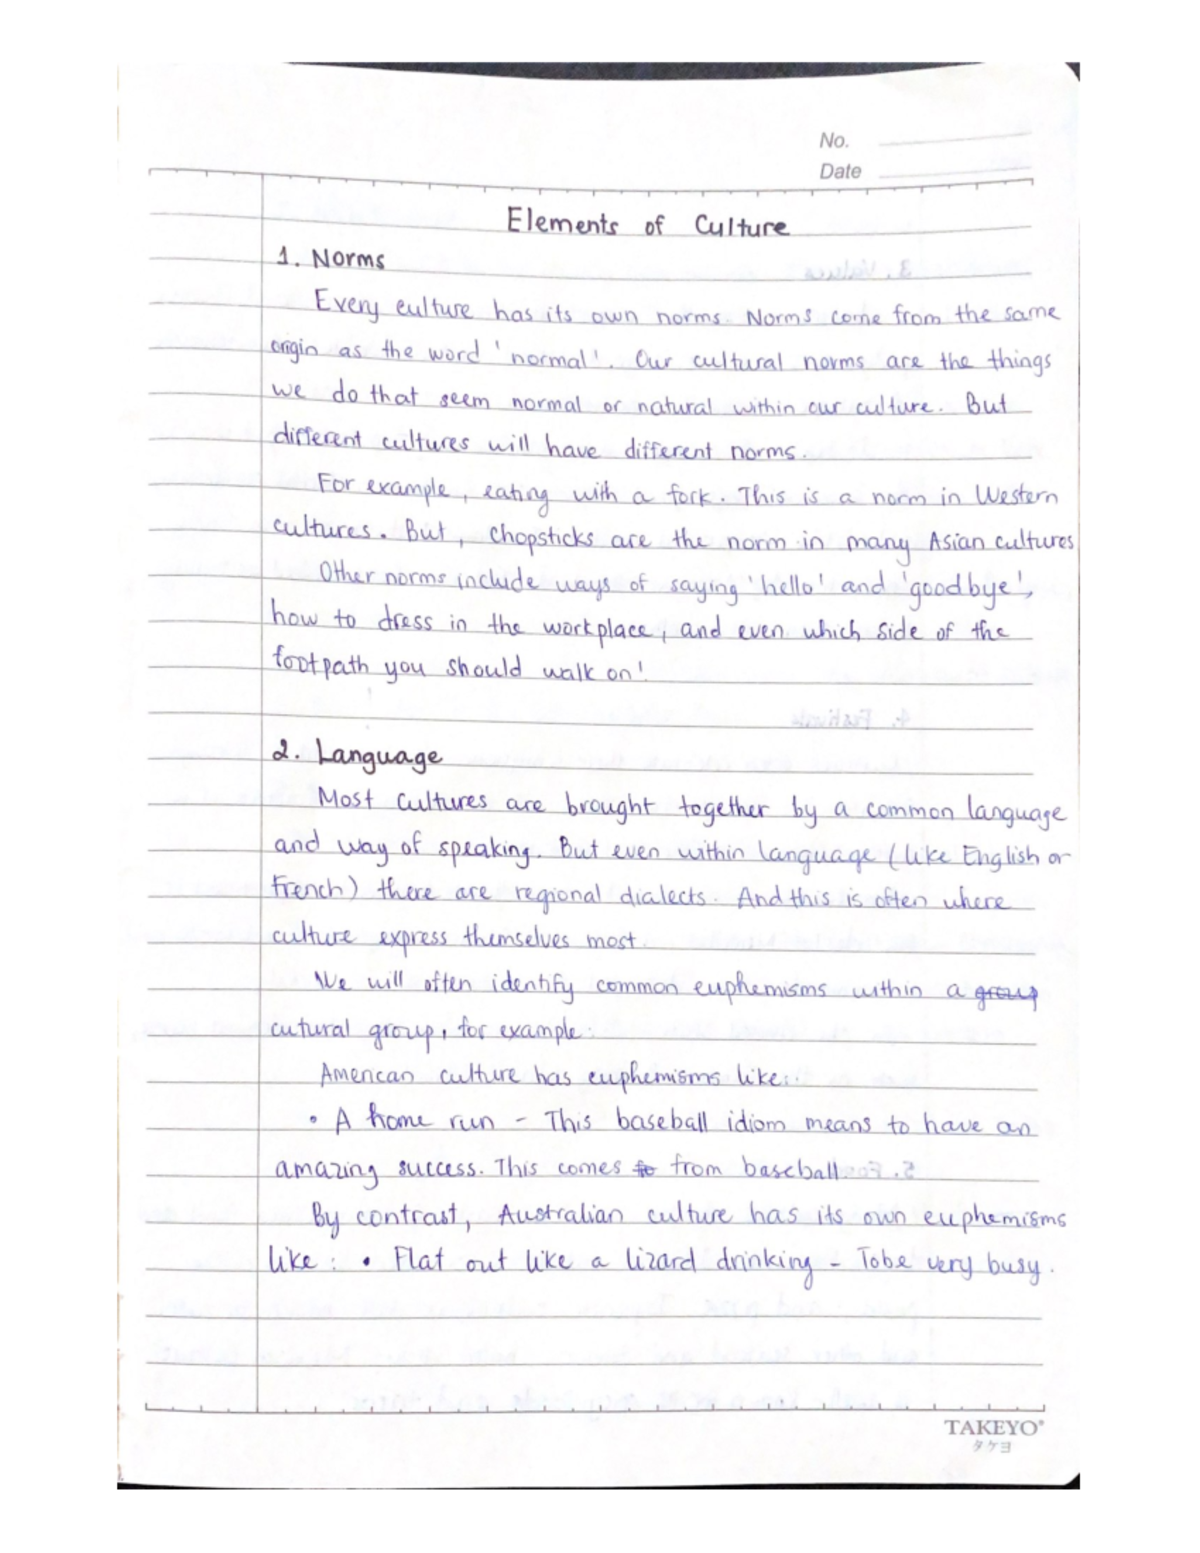 No.
Date
Elements of Culture
1. Norms
Every culture has its own norms. Norms come from the same
origin as the word 'normal'. Our cultural norms are the things
we do that seem normal or natural within our culture. But
different cultures will have different norms.
For example, eating with a fork. This is a norm in Western
cultures. But, chopsticks are the norm in many Asian cultures
Other norms include ways of saying 'hello' and 'goodbye',
how to dress in the workplace, and even which side of the
footpath you should walk on!
2. Language
Most cultures are brought together by a common language
and way of speaking. But even within language (like English or
French) there are regional dialects. And this is often where
culture express themselves most.
We will often identify common euphemisms within a group
cutural group, for example:
American culture has euphemisms like:
• A home run - This baseball idiom means to have an
amazing success. This comes to from baseball.
By contrast, Australian culture has its own euphemisms
like: • Flat out like a lizard drinking - To be very busy.
TAKEYO®
タケヨ